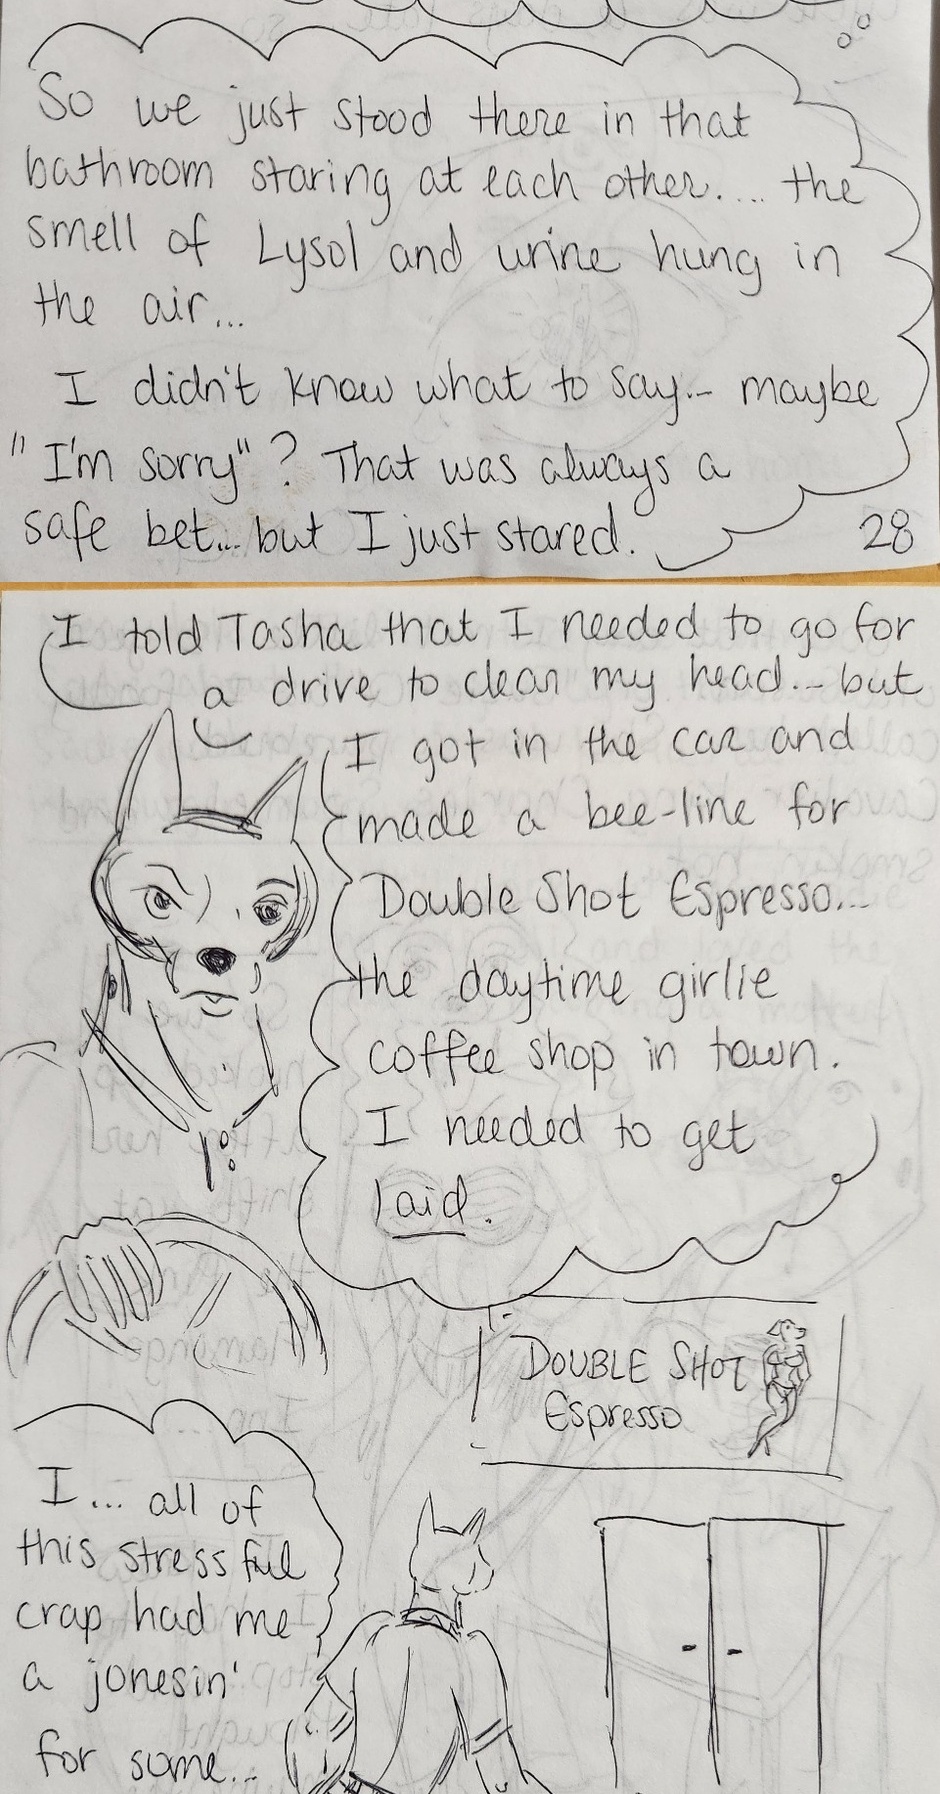 So we just stood there in that
bathroom staring at each other.... the
smell of Lysol and urine hung in
the air...
I didn't know what to say.. maybe
"I'm sorry"? That was always a
safe bet... but I just stared.
28
I told Tasha that I needed to go for
a drive to clear my head... but
I got in the car and
made a bee-line for
Double Shot Espresso...
the daytime girlie
coffee shop in town.
I needed to get
laid.
DOUBLE SHOT
Espresso
I... all of
this stressful
crap had me
a jonesin'
for some...